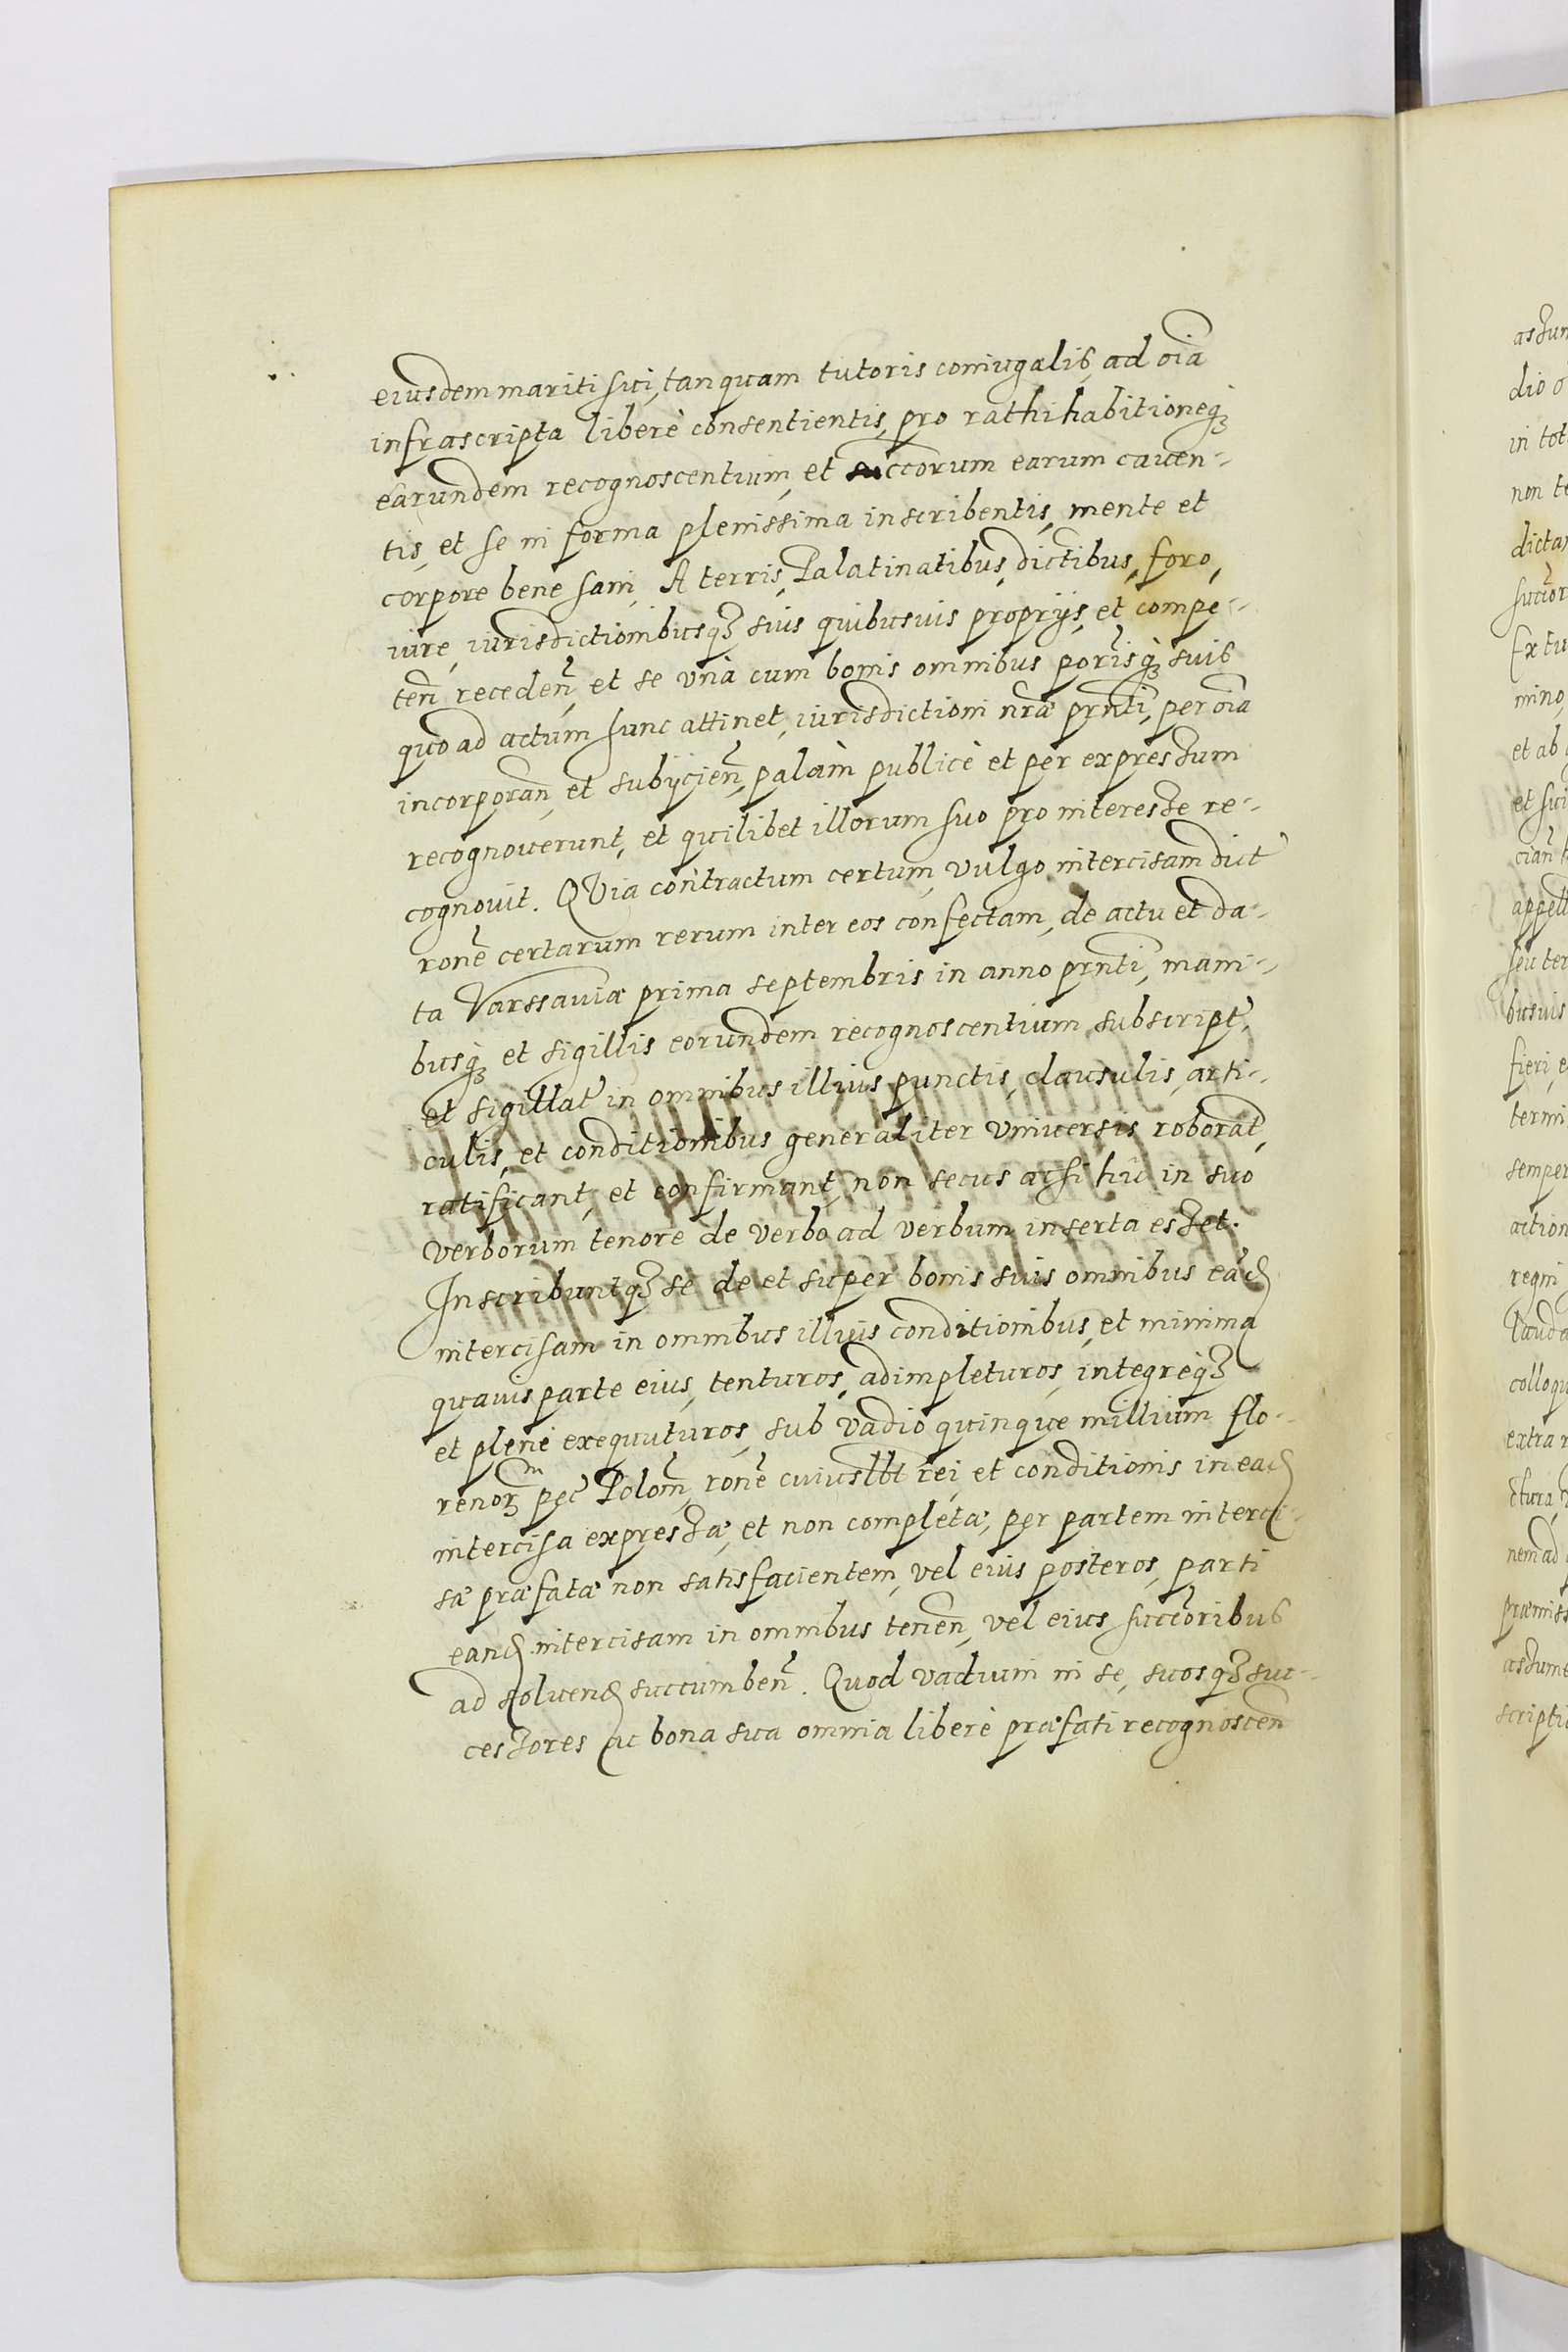 eiusdem mariti sui, tanquam tutoris coniugalis, ad oīa
infrascripta liberè consentientis, pro rathihabitioneq3
earundem recognoscentium, et succorum earum cauen-
tis, et se in forma plenissima inscribentis, mente et
corpore bene sani, A terris, Palatinatibus, dictibus, foro,
iure, iurisdictionibusq3 suis quibusuis proprijs, et compe-
teñ recedeñ, et se vnà cum bonis omnibus poris̄q3 suis
quo ad actum hunc attinet, iurisdictioni nrǣ prn̄ti, per oīa
incorporañ, et subijcieñ, palàm publicè et per expressum
recognouerunt, et quilibet illorum suo pro interesse re-
cognouit. QVia contractum certum, vulgo intercisam dict
ronē certarum rerum inter eos confectam, de actu et da-
ta Varssauiæ prima septembris in anno prn̄ti, mani-
busq3 et sigillis eorundem recognoscentium subscript,
et sigillat in omnibus illius punctis, clausulis, arti-
culis, et conditionibus generaliter vniuersis roborat,
ratificant, et confirmant, non secus acsi hic in suo
verborum tenore de verbo ad verbum inserta esset.
Inscribuntq3 se de et super bonis suis omnibus eād
intercisam in omnibus illius conditionibus, et minima
quauis parte eius, tenturos, adimpleturos, integrèq3
et plenè exequuturos, sub vadio quinque millium flo-
renor̄ pec̄ Poloñ, ronē cuiuslbt rei, et conditionis in ead
intercisa expressæ, et non completæ, per partem interci-
sæ præfatæ non satisfacientem, vel eius posteros, parti
eand intercisam in omnibus teneñ, vel eius succoribus
ad soluend succumbeñ. Quod vadium in se, suosq3 suc-
cessores ac bona sua omnia liberè præfati recognosceñ